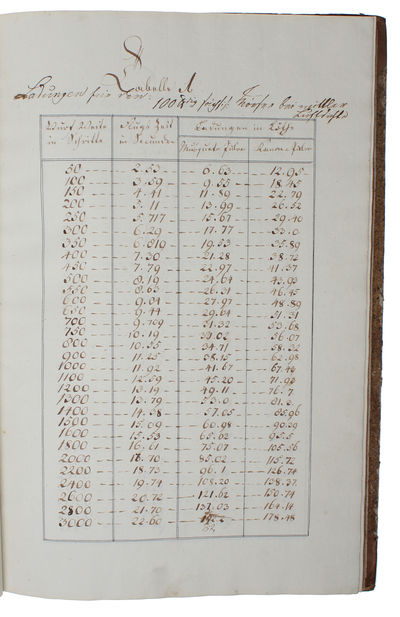 Tabelle A
Ladungen für den 100 ℔ Mörser bei
Wurf Weite Flugs Zeit Ladungen in Loth
in Schritte in Secunden Musquet Pulver Kanon Pulver
50 2.53 6.63 12.95
100 3.59 9.55 18.45
150 4.41 11.89 22.79
200 5.11 13.99 26.52
250 5.717 15.67 29.40
300 6.29 17.77 33.0
350 6.819 19.53 35.89
400 7.30 21.28 38.72
450 7.79 22.97 41.37
500 8.19 24.64 43.93
550 8.63 26.31 46.45
600 9.04 27.97 48.89
650 9.44 29.64 51.31
700 9.709 31.32 53.68
750 10.19 33.02 56.07
800 10.55 34.71 58.32
900 11.25 38.15 62.98
1000 11.92 41.67 67.48
1100 12.59 45.20 71.92
1200 13.19 49.11 76.7
1300 13.79 53.0 81.2
1400 14.38 57.05 85.96
1500 15.09 60.98 90.39
1600 15.53 65.62 95.5
1800 16.61 75.07 105.56
2000 18.70 85.02 115.72
2200 18.73 96.1 126.74
2400 19.74 108.20 138.37
2600 20.72 121.62 150.74
2800 21.70 137.03 164.14
3000 22.60 178.48